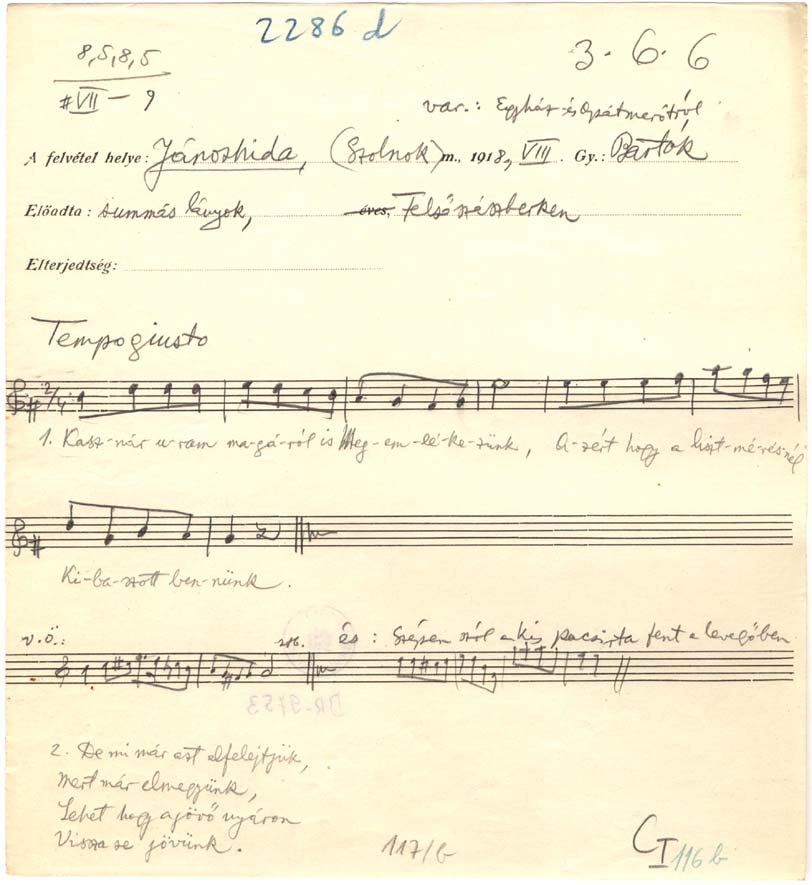 2286 d
8,5,8,5
#VII – 9
3. 6. 6
var.: Egyház- és
A felvétel helye: Jánoshida, (Szolnok) m., 1918, VIII. Gy.: Bartók
Előadta: summás lányok, éves, Felsőszászberken
Elterjedtség:
Tempo giusto
2/4
1. Kasz-nár u-ram ma-gá-ról is Meg-em-lé-ke-zünk, A-zért hogy a liszt-mé-rés-nél
Ki-ba-szott ben-nünk.
v.ö.: stb. és: Szépen szól a kis pacsirta fent a levegőben
DR-9753
2. De mi már ezt elfelejtjük,
Mert már elmegyünk,
Lehet hogy a jövő nyáron
Vissza se jövünk.
117/b
CI 116 b